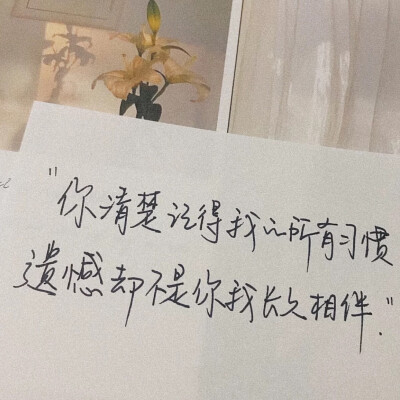 "你清楚记得我心所有习惯
遗憾却不是你我长久相伴."